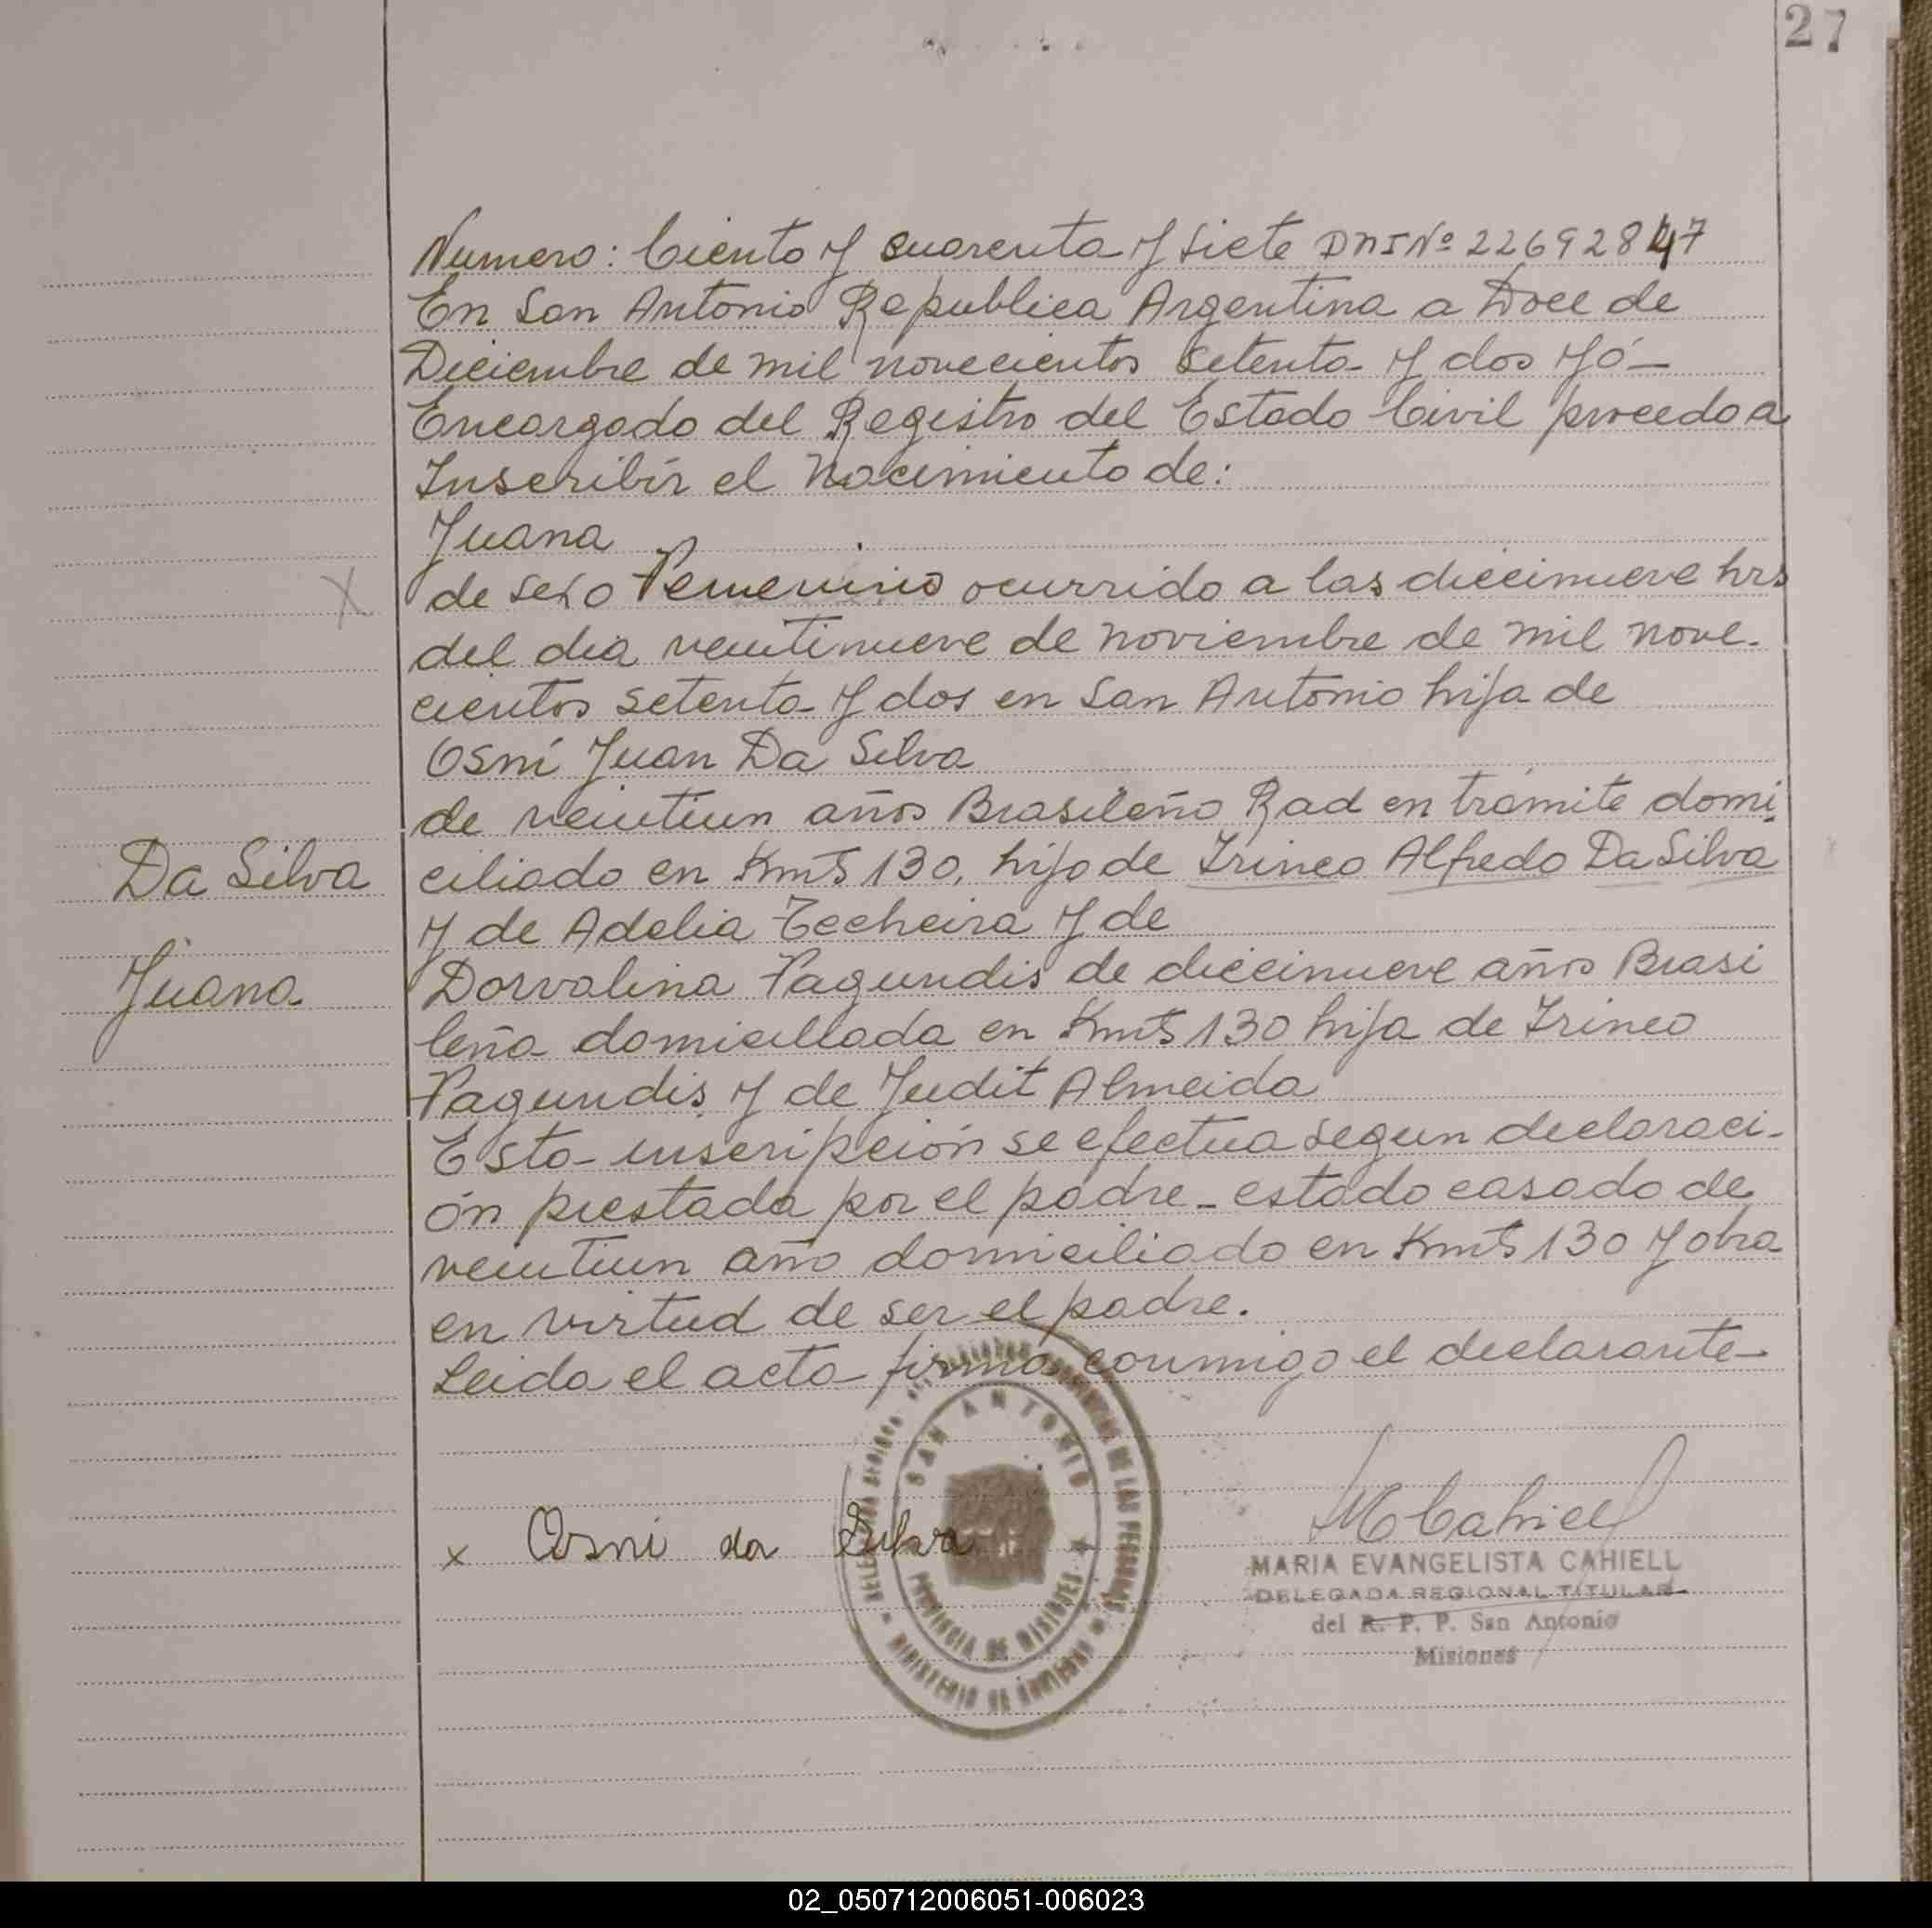 27
Numero: Ciento y cuarenta y siete DNI Nº 22692847
En San Antonio Republica Argentina a Doce de
Diciembre de mil novecientos setenta y dos Yó
Encargado del Registro del Estado Civil procedo a
Inscribir el Nacimiento de:
Juana
de sexo Femenino ocurrido a las diecinueve hrs
del dia veintinueve de noviembre de mil nove-
cientos setenta y dos en San Antonio hija de
Osni Juan Da Silva
de veintiun años Brasileño Rad en trámite domi
Da Silva
ciliado en Kmts 130, hijo de Irineo Alfredo Da Silva
y de Adelia Techeira y de
Juana
Dorvalina Fagundis de diecinueve años Brasi
leña domicillada en Kmts 130 hija de Irineo
Fagundis y de Judit Almeida
Esta inscripción se efectua segun declaraci-
ón prestada por el padre - estado casado de
veintiun año domiciliado en Kmts 130 y obra
en virtud de ser el padre.
Leida el acta firma conmigo el declarante
SAN ANTONIO
PROVINCIA DE MISIONES
MINISTERIO DE GOBIERNO
x Osni da Silva
MCahiell
MARIA EVANGELISTA CAHIELL
DELEGADA REGIONAL TITULAR
del R. P. P. San Antonio
Misiones
02_050712006051-006023